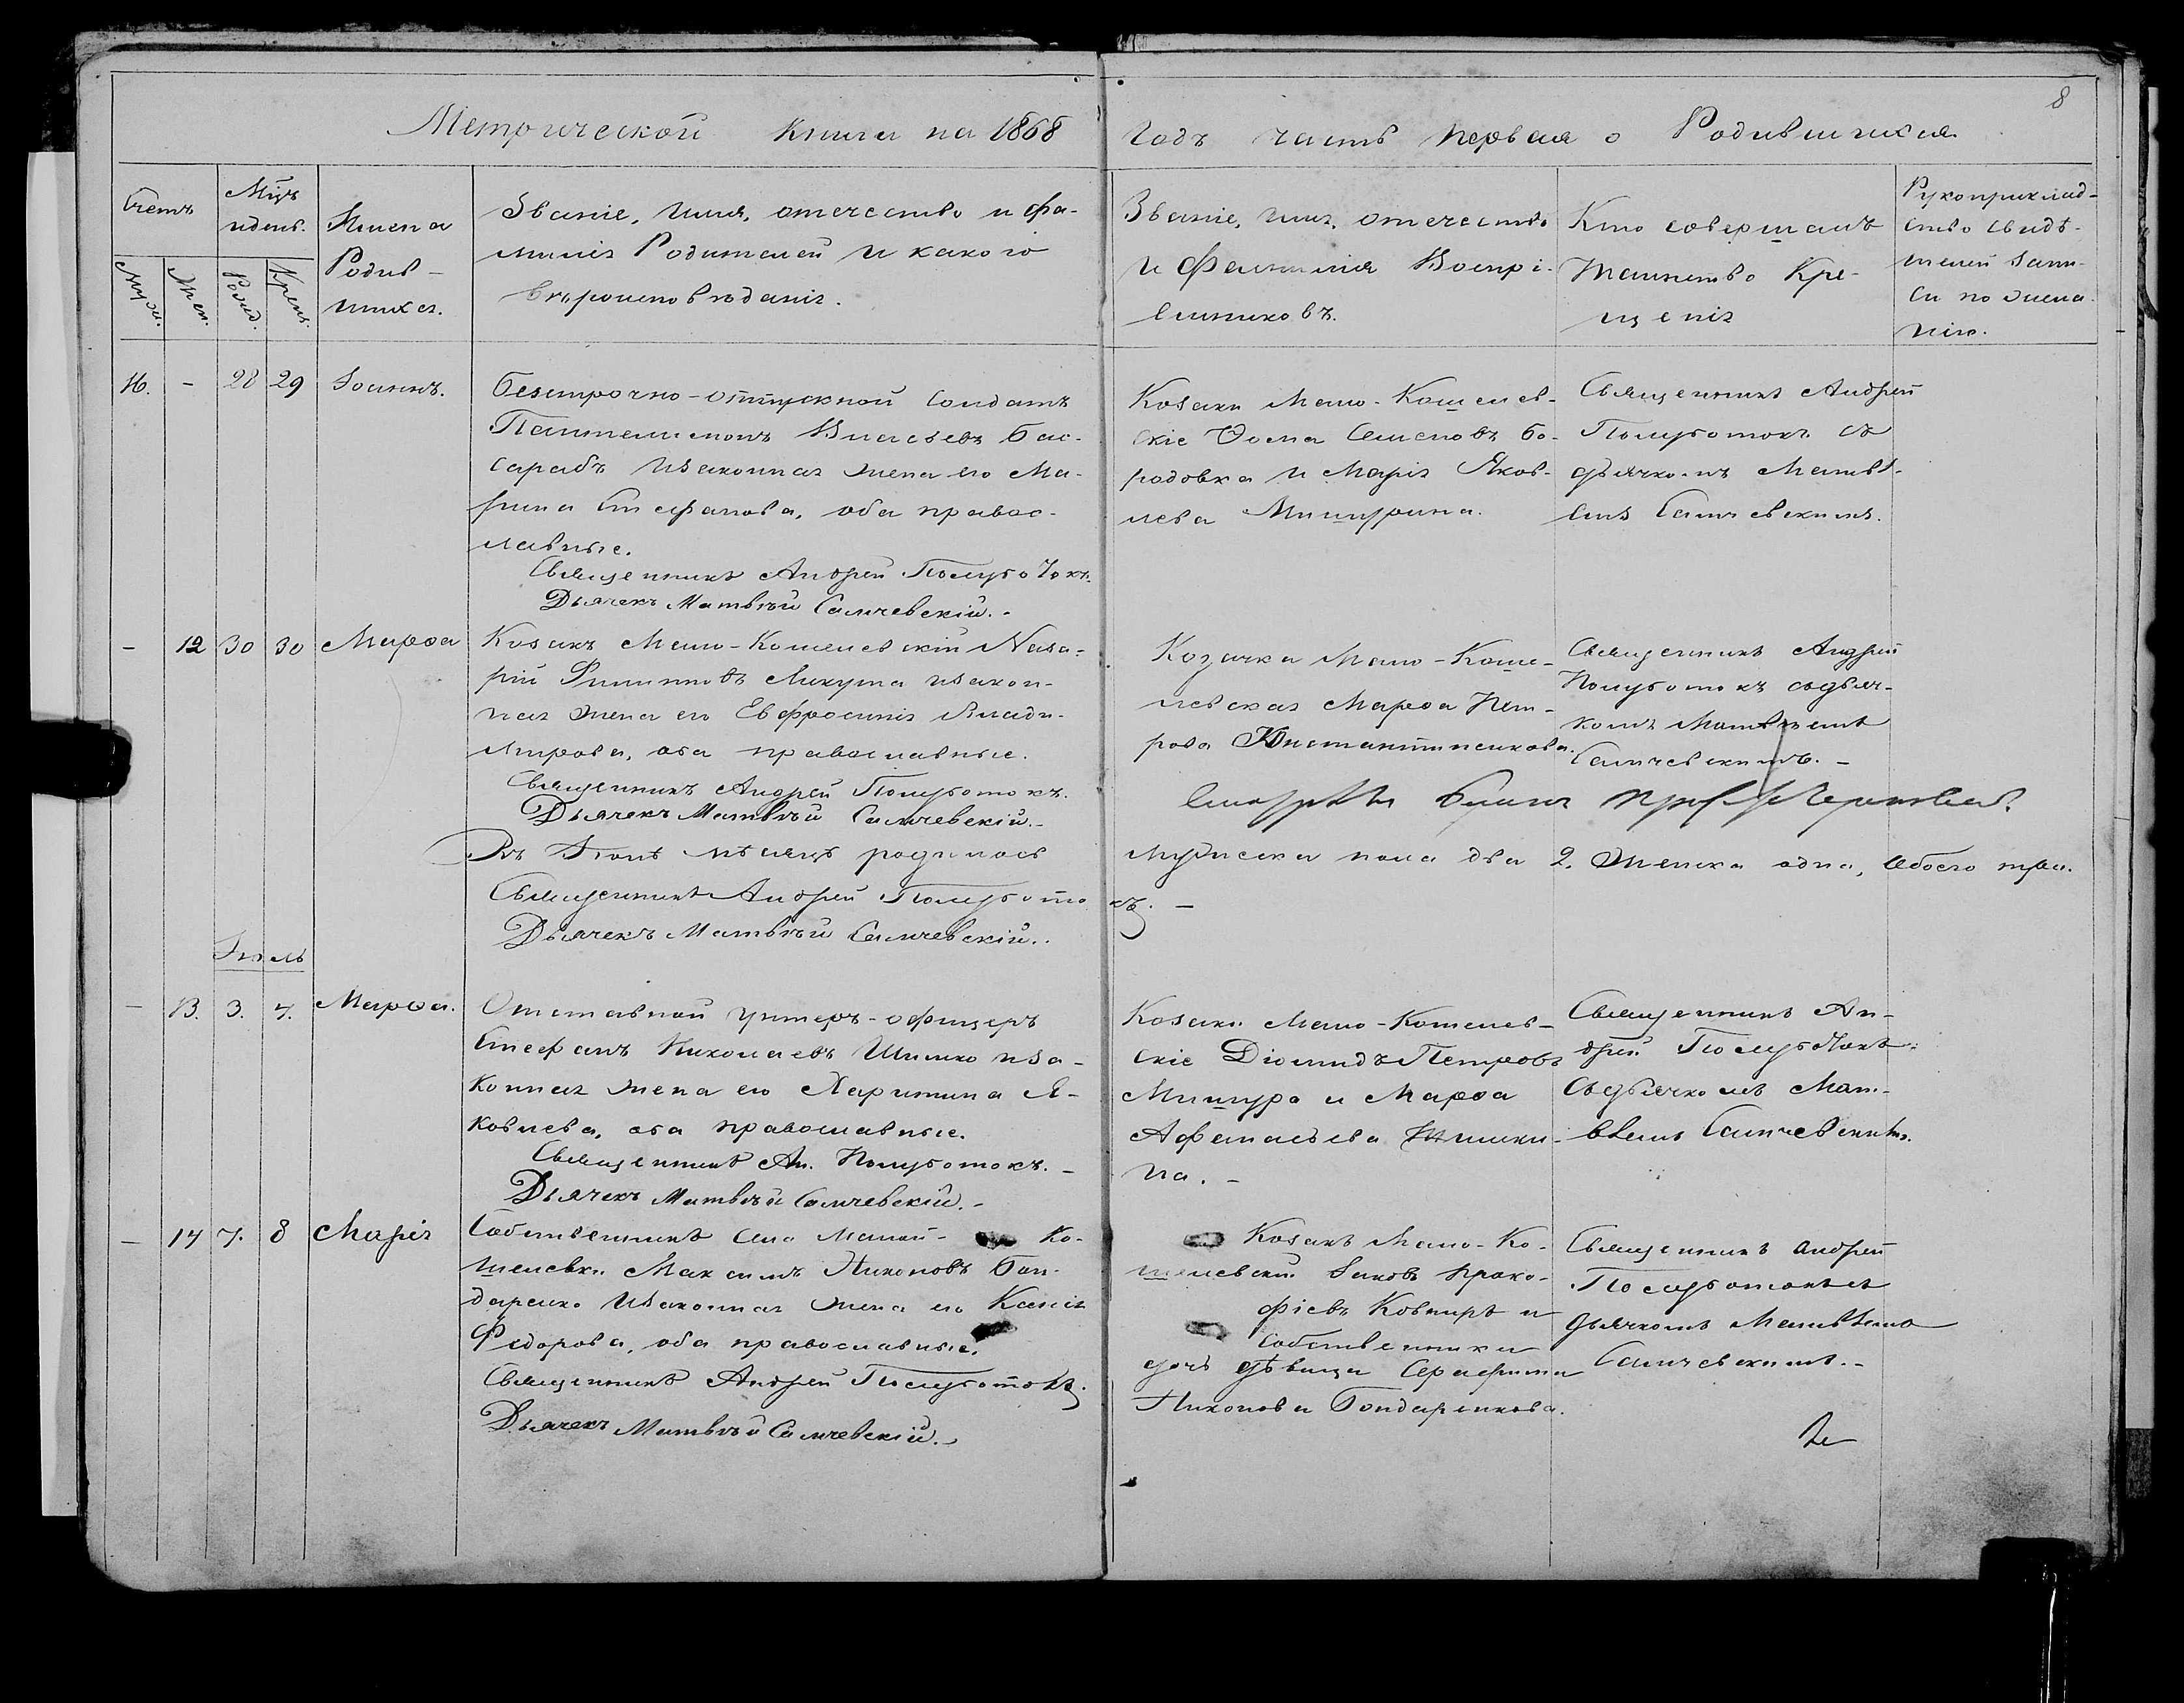 8
Метрической книги на 1868
годъ часть первая о Родившихся
Счетъ
Мцъ
и день.
Муж.
Жен.
Рожд.
Крещ.
Имена
Родив-
шихся.
Званіе, имя, отечество и фа-
милія Родителей и какого
вѣроисповѣданія.
Званіе, имя, отечество
и фамилія Воспрі-
емниковъ.
Кто совершалъ
таинство Кре-
щенія
Рукоприклад-
ство свидѣ-
телей запи-
си по жела-
нію.
16. - 28 29 Іоаннъ.
безсрочно-отпускной солдатъ
Пантелимонъ Власьевъ Бас-
сарабъ изаконная жена его Ма-
рина Стефанова, оба правос-
лавные.
Священникъ Андрей Полуботокъ.
Дьячекъ Матвѣй Самчевскій.-
Козаки Мало-Кошелев-
скіе Ѳома Семеновъ Бо-
родовка и Марія Яков-
лева Мишурина.
Священникъ Андрей
Полуботокъ съ
дьячкомъ Матвѣ-
емъ Самчевскимъ.
- 12 30 30 Марѳа
Козакъ Мало-Кошелевскій Наза-
рій Филипповъ Микута изакон-
ная жена его Евфросинія Влади-
мирова, оба православные.
Священникъ Андрей Полуботокъ.
Дьячекъ Матвѣй Самчевскій.-
Козачка Мало-Коше-
левская Марѳа Пет-
рова Константиенкова.
Священникъ Андрей
Полуботокъ съдьяч-
комъ Матвѣемъ
Самчевскимъ.-
Въ Іюнѣ мѣсяцѣ родилось
мужеска пола два 2. Женска одна, Обоего три.
Священникъ Андрей Полубото
къ. -
Дьячекъ Матвѣй Самчевскій.
Іюль
- 13. 3. 4. Марѳа.
Отставной унтеръ-офицеръ
Стефанъ Николаевъ Шишко иза-
конная жена его Харитина Я-
ковлева, оба православные.
Священникъ Ан. Полуботокъ.-
Дьячекъ Матвѣй Самчевскій.-
Козаки Мало-Кошелев-
скіе Діомидъ Петровъ
Мишура и Марѳа
Афанасьева Шишки-
на. -
Священникъ Ан-
дрей Полуботокъ
съдьячкомъ Мат-
вѣемъ Самчевскимъ.
- 14 7. 8 Марія
Собственникъ села Малой- Ко-
шелевки Максимъ Никоновъ Бон-
даренко изаконная жена его Ксенія
Федорова, оба православные.
Священникъ Андрей Полуботокъ.
Дьячекъ Матвѣй Самчевскій.-
Козакъ Мало-Ко-
шелевскій Яковъ Проко-
фіевъ Ковтиръ и
собственника
дочь дѣвица Серафима
Никонова Бондаренкова.
Священникъ Андрей
Полуботокъ съ
дьячкомъ Матвѣемъ
Самчевскимъ.-